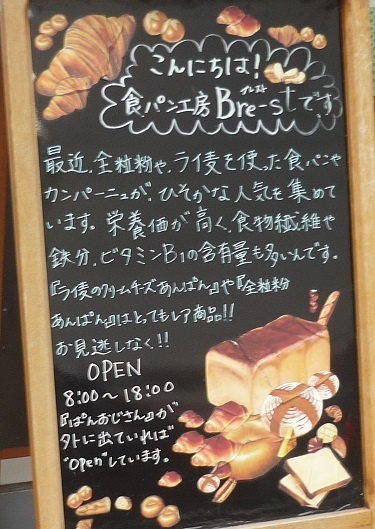 こんにちは!
食パン工房Bre-stです
ブレスト
最近、全粒粉や、ライ麦を使った食パンや
カンパーニュが、ひそかな人気を集めて
います。栄養価が高く、食物繊維や
鉄分、ビタミンB1の含有量も多いんです。
『ライ麦のクリームチーズあんぱん』や『全粒粉
あんぱん』はとってもレア商品!!
お見逃しなく!!
OPEN
8:00〜18:00
『ぱんおじさん』が
外に出ていれば
"Open"しています。